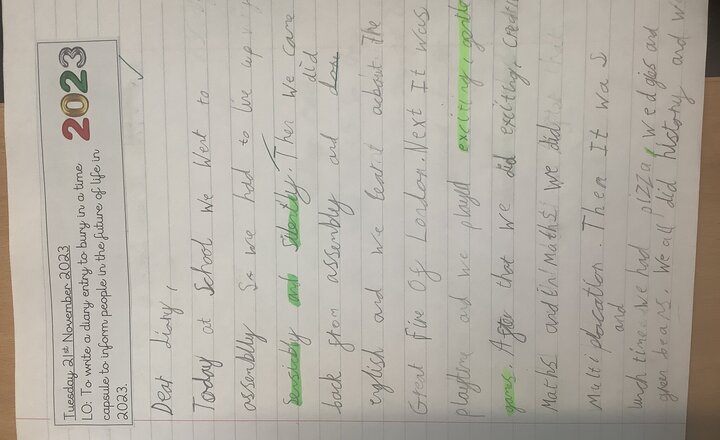 Tuesday 21st November 2023
LO: To write a diary entry to bury in a time
capsule to inform people in the future of life in
2023.
2023
Dear diary,
Today at School we went to
assemblly So we had to live up
sensibly and silently. Then We came
did
back from assembly and
english and we learnt about the
Great Fire Of London. Next It was
playtime and we played exciting, gentle
games. After that we did exciting, 
Maths and in Maths we did
Multi placation. Then It was
and
lunch time. we had pizza, wedgies and
green beans. We all did history and